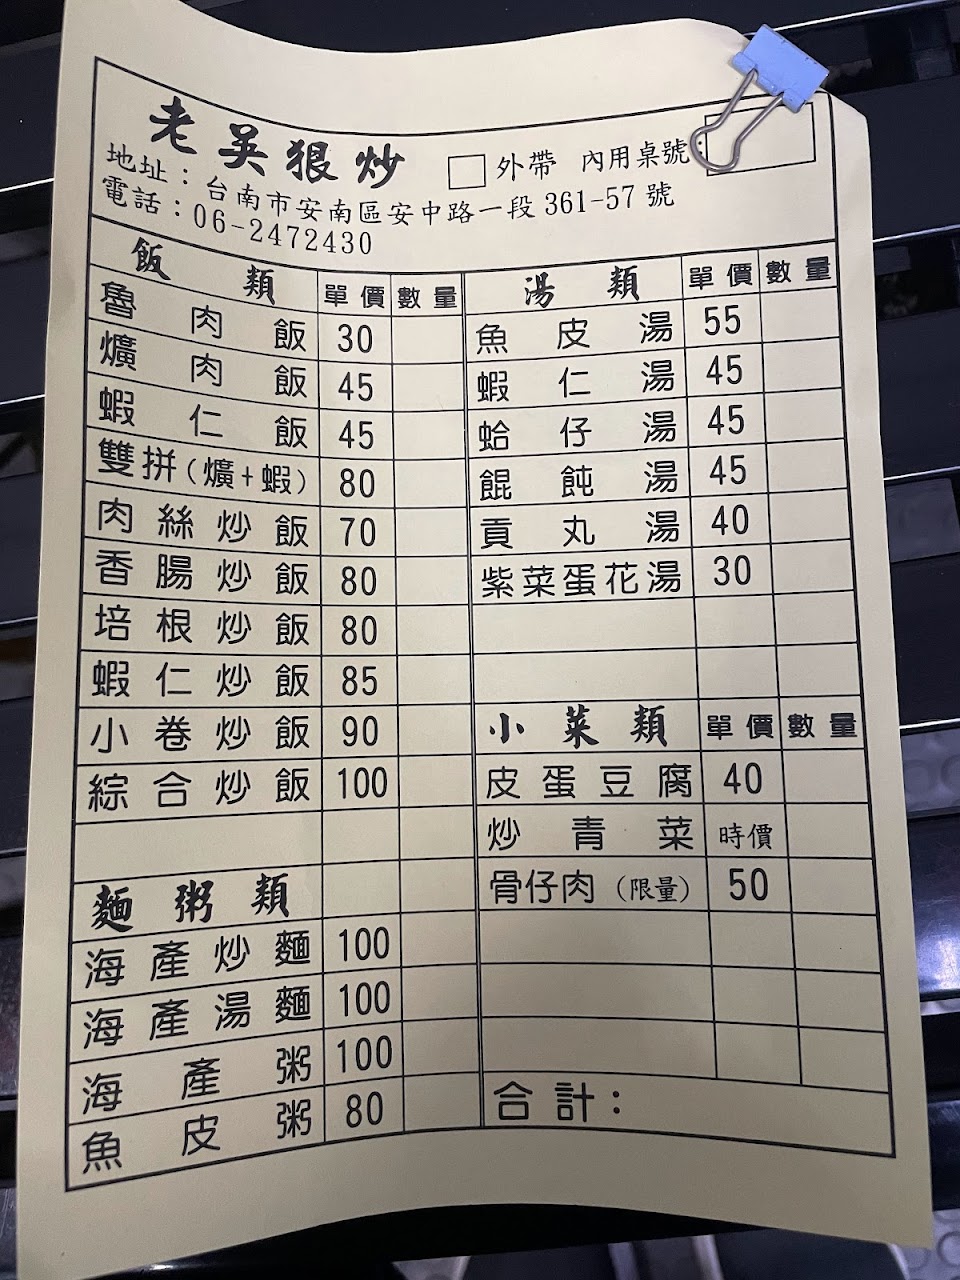 老吳狠炒
外帶 內用桌號:
地址：台南市安南區安中路一段361-57號
電話：06-2472430
飯類 單價 數量
魯肉飯 30
爌肉飯 45
蝦仁飯 45
雙拼(爌+蝦) 80
肉絲炒飯 70
香腸炒飯 80
培根炒飯 80
蝦仁炒飯 85
小卷炒飯 90
綜合炒飯 100
麵粥類
海產炒麵 100
海產湯麵 100
海產粥 100
魚皮粥 80
湯類 單價 數量
魚皮湯 55
蝦仁湯 45
蛤仔湯 45
餛飩湯 45
貢丸湯 40
紫菜蛋花湯 30
小菜類 單價 數量
皮蛋豆腐 40
炒青菜 時價
骨仔肉(限量) 50
合計：